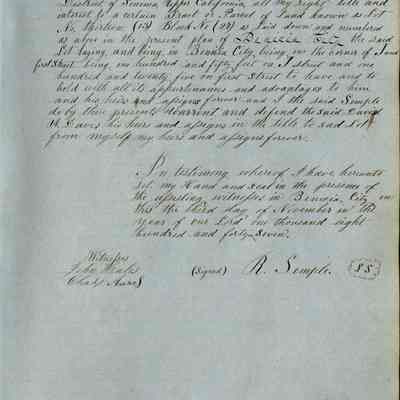 District of Sonoma Upper California, all my right title and
interest to a certain Tract or Parcel of Land known as Lot
No. Thirteen (13) Block No (09) as laid down and numbered
as above in the present plan of Benicia City the said
Lot laying, and being, in Benicia City, being, on the corner of I and
first Street being one hundred and fifty feet on I street and one
hundred and twenty five on first Street to have and to
hold with all its appurtenances and advantages to him
and his heirs and assigns forever and I the said Semple
do by these presents Warrant and defend the said David
W. Davis his heirs and assigns in the title to said Lot
from myself my heirs and assigns forever.
In testimony whereof I have hereunto
set my Hand and seal in the presence of
the assisting witnesses in Benicia City on
this the third day of November in the
year of our Lord one thousand eight
hundred and forty seven.
Witnesses
John
Charly
(Signed) R. Semple. SS